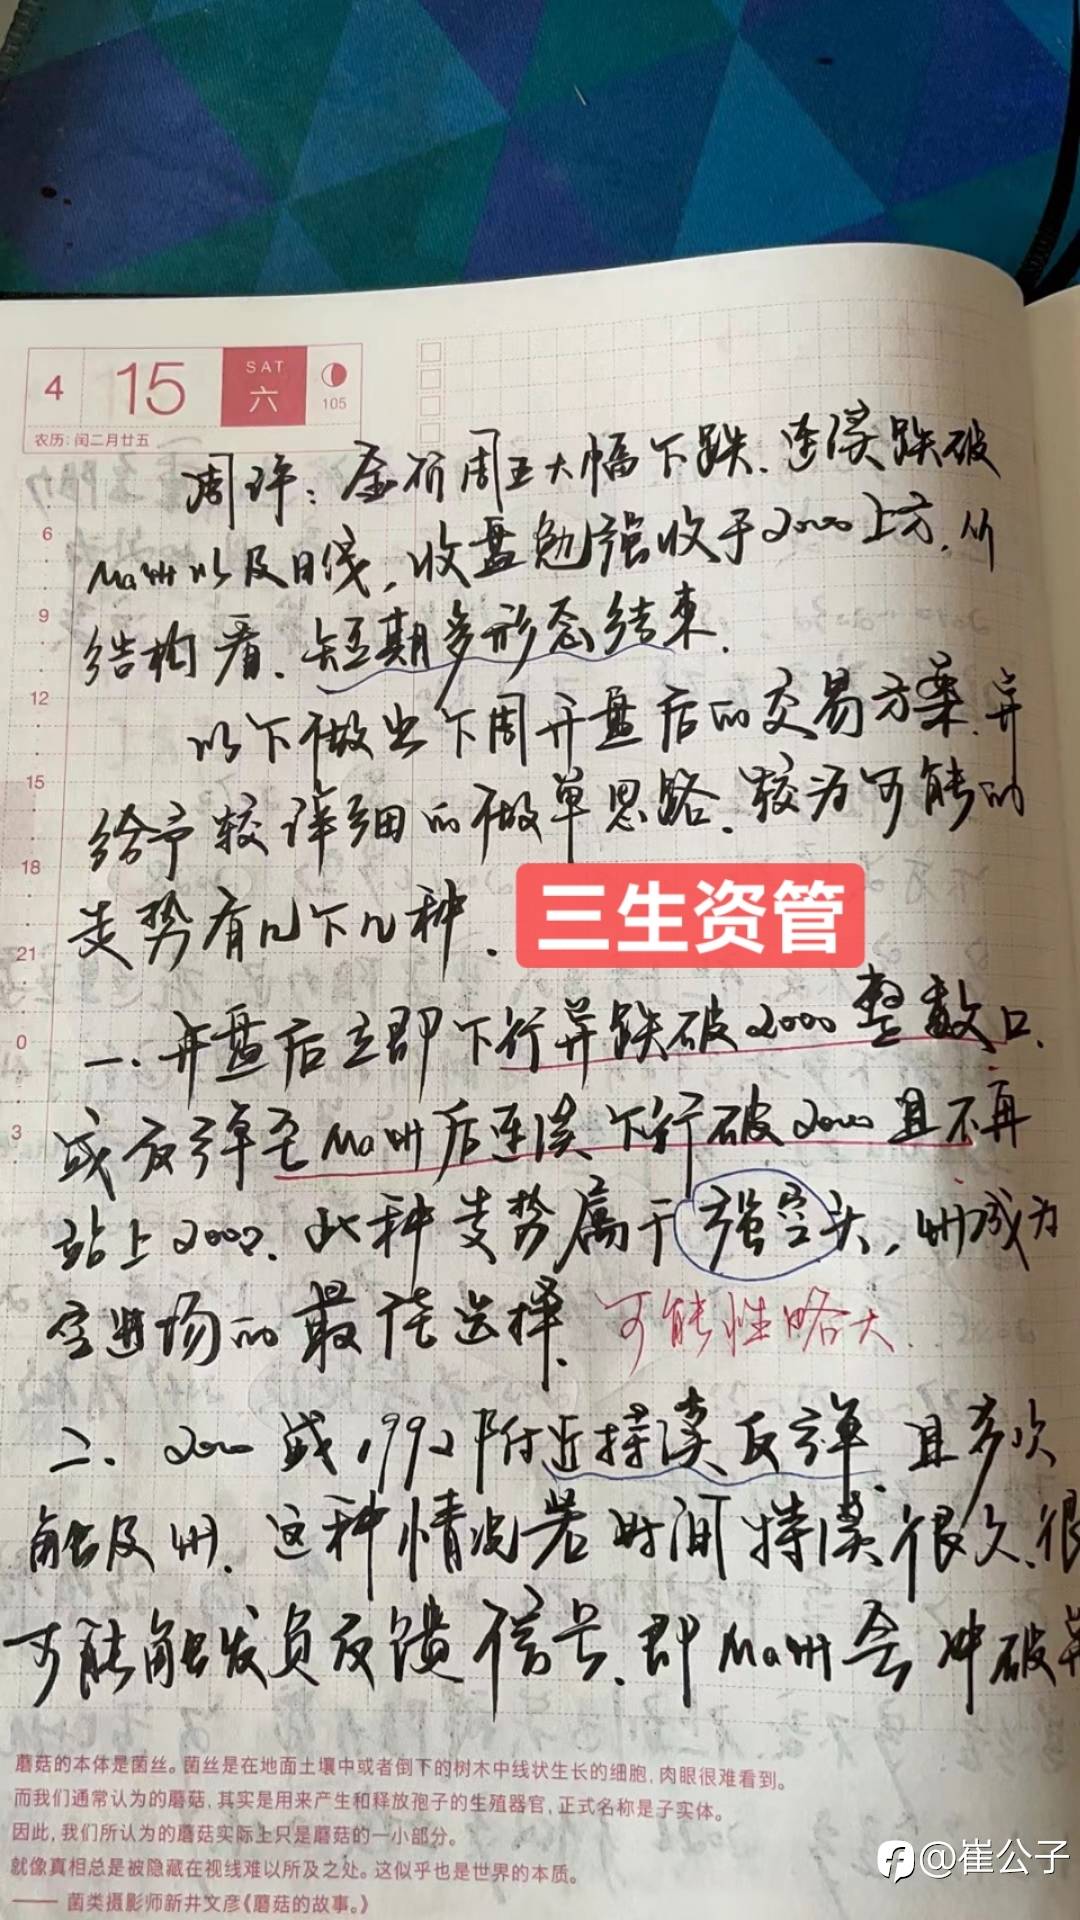 4
15
SAT
六
105
农历: 闰二月廿五
周评：金价周五大幅下跌.连续跌破
6
Ma4H以及日线，收盘勉强收于2000上方.从
9
结构看.短期多形态结束.
12
以下做出下周开盘后的交易方案.并
15
给予较详细的做单思路.较为可能的
18
走势有以下几种.
三生资管
21
一.开盘后立即下行并跌破2000整数口.
0
或反弹至Ma4H后连续下行破2000且不再
3
站上2000.此种走势属于强空头，4H成为
空进场的最佳选择.可能性略大.
二、2000或1992附近持续反弹.且多次
触及4H.这种情况若时间持续很久.很
可能触发负反馈信号.即Ma4H会冲破并
蘑菇的本体是菌丝。菌丝是在地面土壤中或者倒下的树木中线状生长的细胞, 肉眼很难看到。
而我们通常认为的蘑菇, 其实是用来产生和释放孢子的生殖器官, 正式名称是子实体。
因此, 我们所认为的蘑菇实际上只是蘑菇的一小部分。
就像真相总是被隐藏在视线难以所及之处。这似乎也是世界的本质。
—— 菌类摄影师新井文彦《蘑菇的故事。》
@崔公子